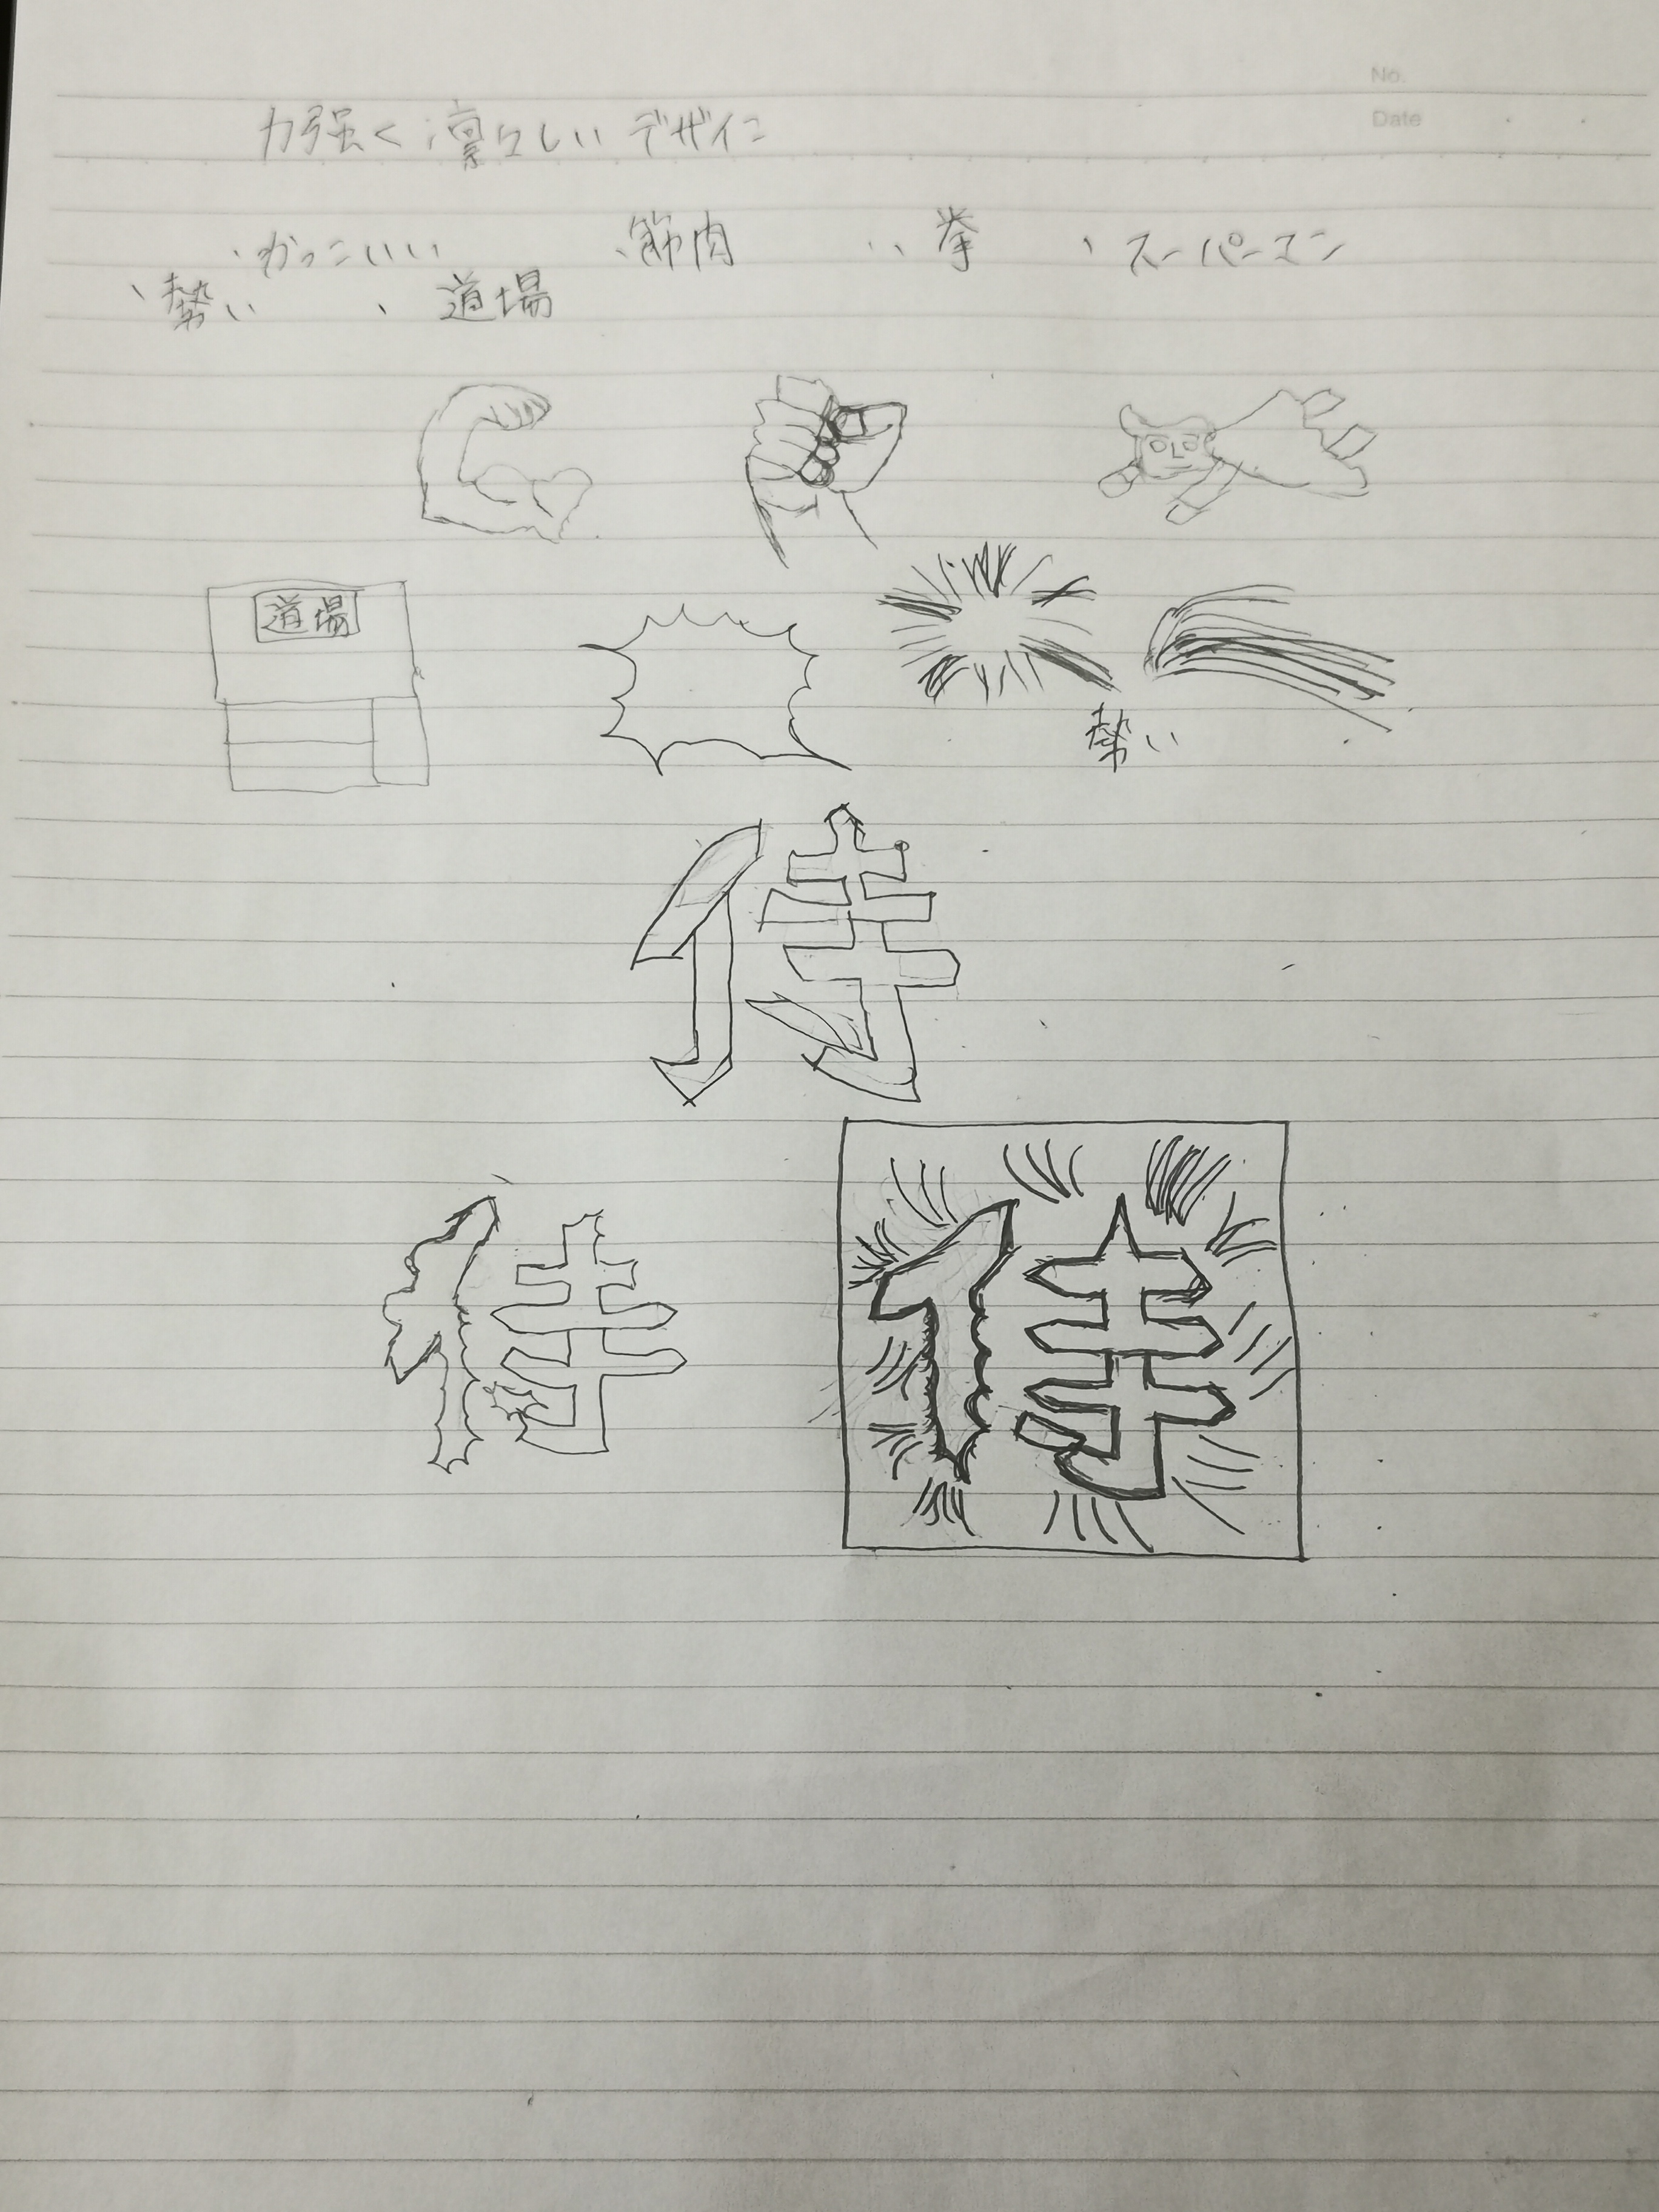 No.
Date
力強く凛々しいデザイン
、かっこいい 、筋肉 、、拳 、スーパーマン
、勢い 、道場
道場
勢い
侍
侍
侍